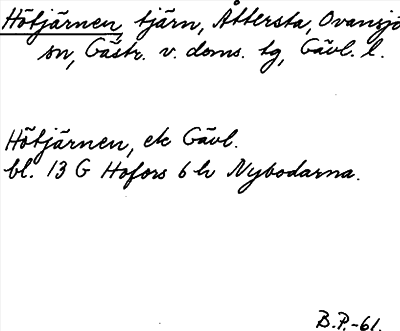 Hötjärnen, tjärn, Åttersta, Ovansjö
sn, Gästr. v. doms. tg, Gävl. l.
Hötjärnen, ek Gävl.
bl. 13 G Hofors 6 h Nybodarna.
B.P.-61.